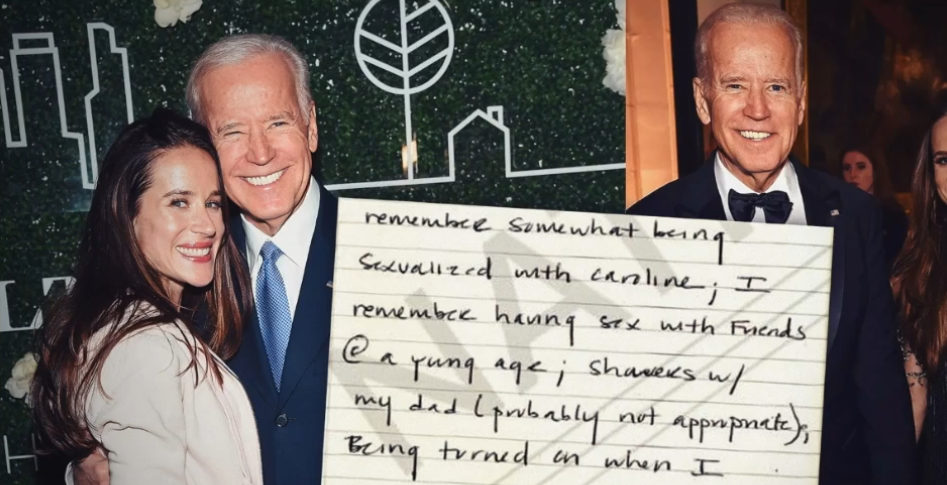 remember somewhat being
sexualized with caroline; I
remember having sex with Friends
@ a young age; showers w/
my dad (probably not appropriate);
Being turned on when I